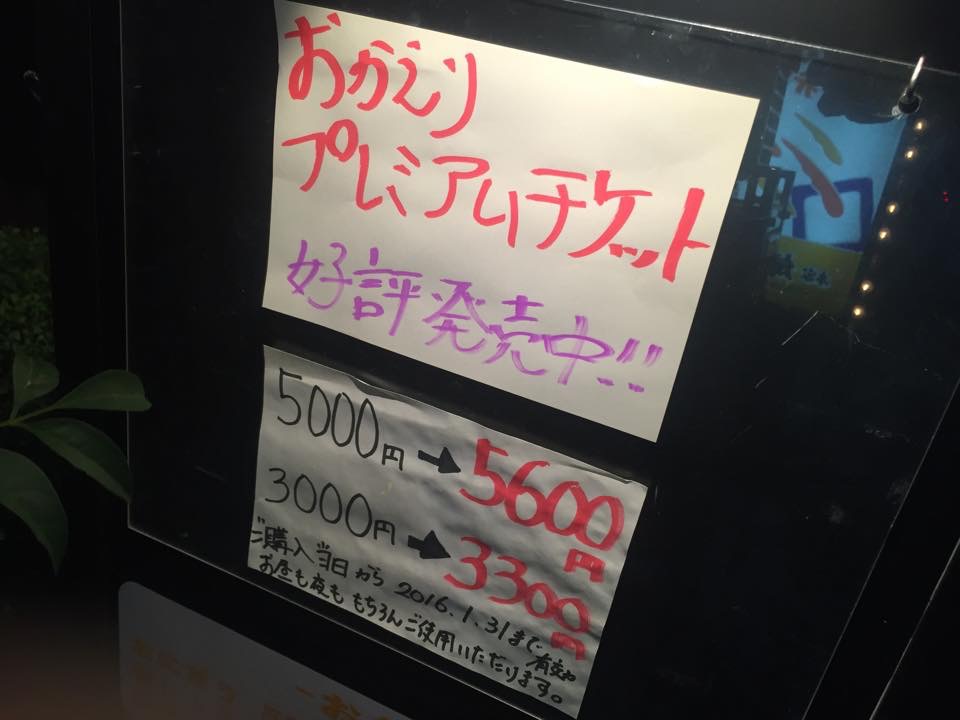 おかえり
プレミアムチケット
好評発売中!!
5000円→5600円
3000円→3300円
ご購入当日から 2016.1.31まで有効
お昼も夜も もちろんご使用いただけます。